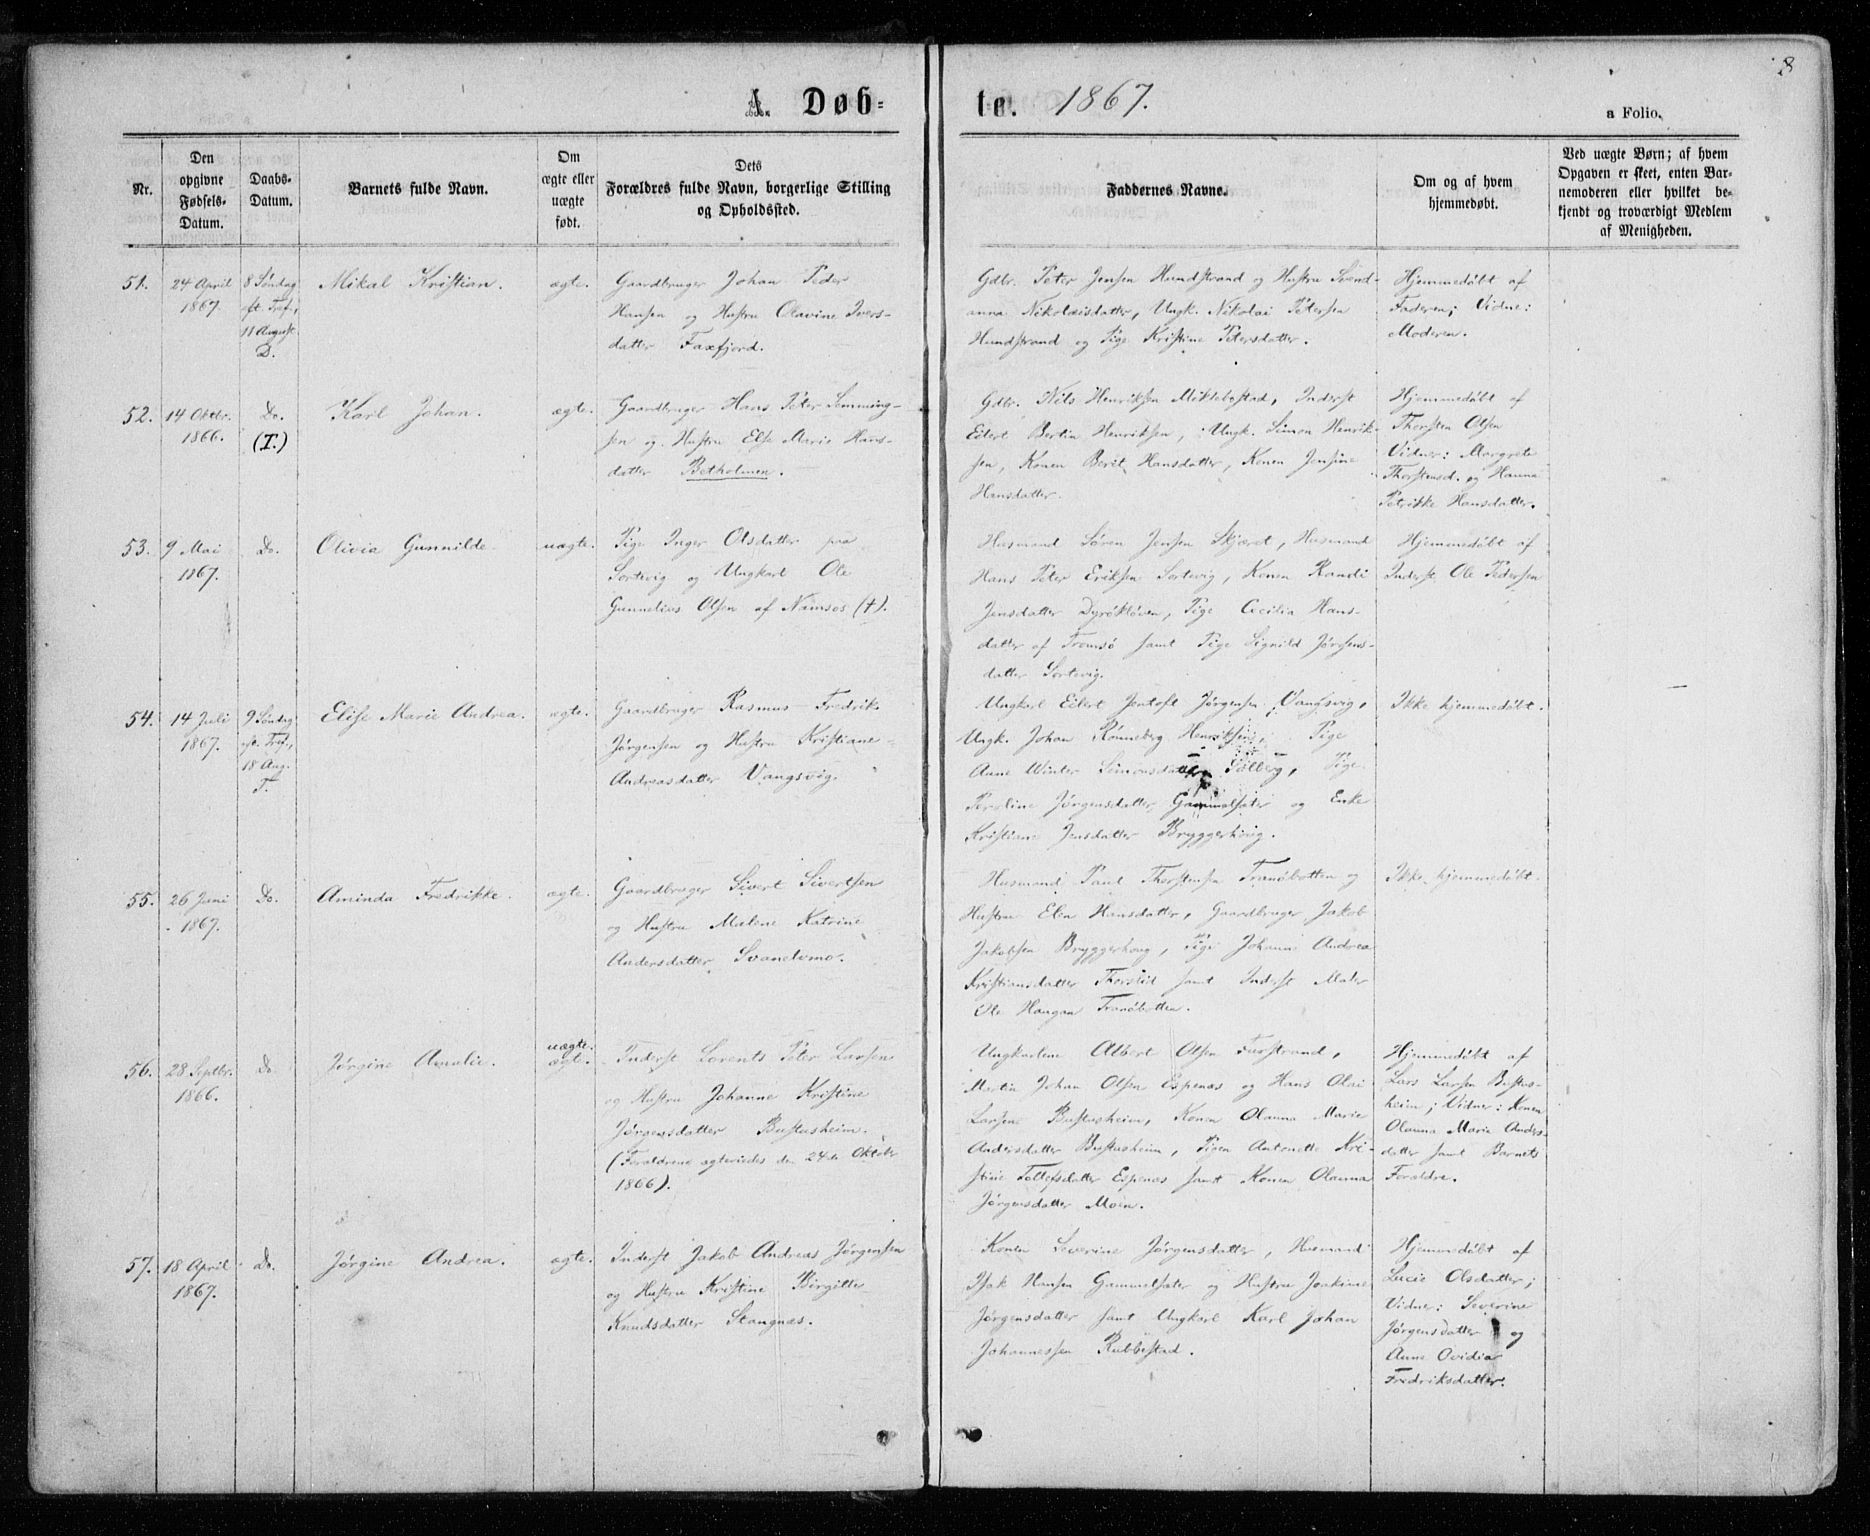 8
A. Døb-
te. 1867.
a Folio.
Nr.
Den
opgivne
Fødsels-
Datum.
Daabs-
Datum.
Barnets fulde Navn.
Om
ægte eller
uægte
født.
Dets
Forældres fulde Navn, borgerlige Stilling
og Opholdssted.
Faddernes Navne.
Om og af hvem
hjemmedøbt.
Ved uægte Børn; af hvem
Opgaven er skeet, enten Bar-
nemoderen eller hvilket be-
kjendt og troværdigt Medlem
af Menigheden.
51.
24 April
1867.
8 Søndag
eft. Tref.,
11 August.
D.
Mikal Kristian.
ægte.
Gaardbruger Johan Peder
Hansen og Hustru Olavine Ivers-
datter Faxfjord.
Gdbr. Peter Jensen Hundstrand og Hustru Svend-
anna Nikolaisdatter, Ungk. Nikolai Petersen
Hundstrand og Pige Kristine Petersdatter.
Hjemmedøbt af
Faderen; Vidne:
Moderen.
52.
14 Oktbr.
1866.
Do.
(T.)
Karl Johan.
ægte.
Gaardbruger Hans Peter Semming-
sen og Hustru Else Marie Hans-
datter Betholmen.
Gdbr. Nils Henriksen Miklebostad, Inderst
Eilert Bertin Henriksen, Ungk. Simon Henrik-
sen, Konen Berit Hansdatter, Konen Jensine
Hansdatter.
Hjemmedøbt af
Thorsten Olsen
Vidner: Margrete
Thorstensd. og Hanna
Petrikke Hansdatter.
53.
9 Mai
1867.
Do.
Olivia Gunnilde.
uægte.
Pige Inger Olsdatter paa
Sortevig og Ungkarl Ole
Gunnelius Olsen af Namsos (†).
Husmand Søren Jensen Skjæret, Husmand
Hans Peter Eriksen Sortevig, Konen Randi
Jensdatter Dyrökloven, Pige Cecilia Hans-
datter af Tromsö samt Pige Signild Jørgens-
datter Sortevig.
Hjemmedøbt af
Inderst Ole Pedersen
54.
14 Juli
1867.
9 Søndag
eft. Tref.,
18 Aug.
T.
Elise Marie Andrea.
ægte.
Gaardbruger Rasmus Fredrik
Jørgensen og Hustru Kristiane
Andreasdatter Vangsvig.
Ungkarl Eilert Jentoft Jørgensen Vangsvig,
Ungk. Johan Rönneberg Henriksen, Pige
Anne Winter Simonsdatter Solberg, Pige
Peroline Jørgensdatter Gammelsæter og Enke
Kristiane Jensdatter Bryggerhaug.
Ikke hjemmedøbt.
55.
26 Juni
1867.
Do.
Aminda Fredrikke.
ægte.
Gaardbruger Sivert Sivertsen
og Hustru Malene Katrine
Andersdatter Svanelvmo.
Husmand Paul Thorstensen Tranöbotten og
Hustru Elen Hansdatter, Gaardbruger Jakob
Jakobsen Bryggerhaug, Pige Johanna Andrea
Kristiansdatter Thorslid samt Inderst Maler
Ole Haugan Tranöbotten.
Ikke hjemmedøbt.
56.
28 Septbr.
1866.
Do.
Jørgine Amalie.
uægte.
ægte.
Inderst Lorents Peter Larsen
og Hustru Johanne Kristine
Jørgensdatter Bustasheim.
(Forældrene ægteviedes den 24de Oktobr
1866).
Ungkarlene Albert Olsen Furstrand,
Martin Johan Olsen Espenæs og Hans Olai
Larsen Bustasheim, Konen Olauna Marie
Andersdatter Bustasheim, Pigen Antonette Kri-
stine Tollefsdatter Espenæs samt Konen Olauna
Jørgensdatter Moen.
Hjemmedøbt af
Lars Larsen Bustas-
heim; Vidner: Konen
Olauna Marie Anders-
datter samt Barnets
Forældre.
57.
18 April
1867.
Do.
Jørgine Andrea.
ægte.
Inderst Jakob Andreas Jørgensen
og Hustru Kristine Birgitte
Knudsdatter Stangnæs.
Konen Severine Jørgensdatter, Husmand
Isak Hansen Gammelsæter og Hustru Joakime
Jørgensdatter samt Ungkarl Karl Johan
Johannessen Rubbestad.
Hjemmedøbt af
Lucie Olsdatter;
Vidner: Severine
Jørgensdatter og
Anne Ovidia
Fredriksdatter.